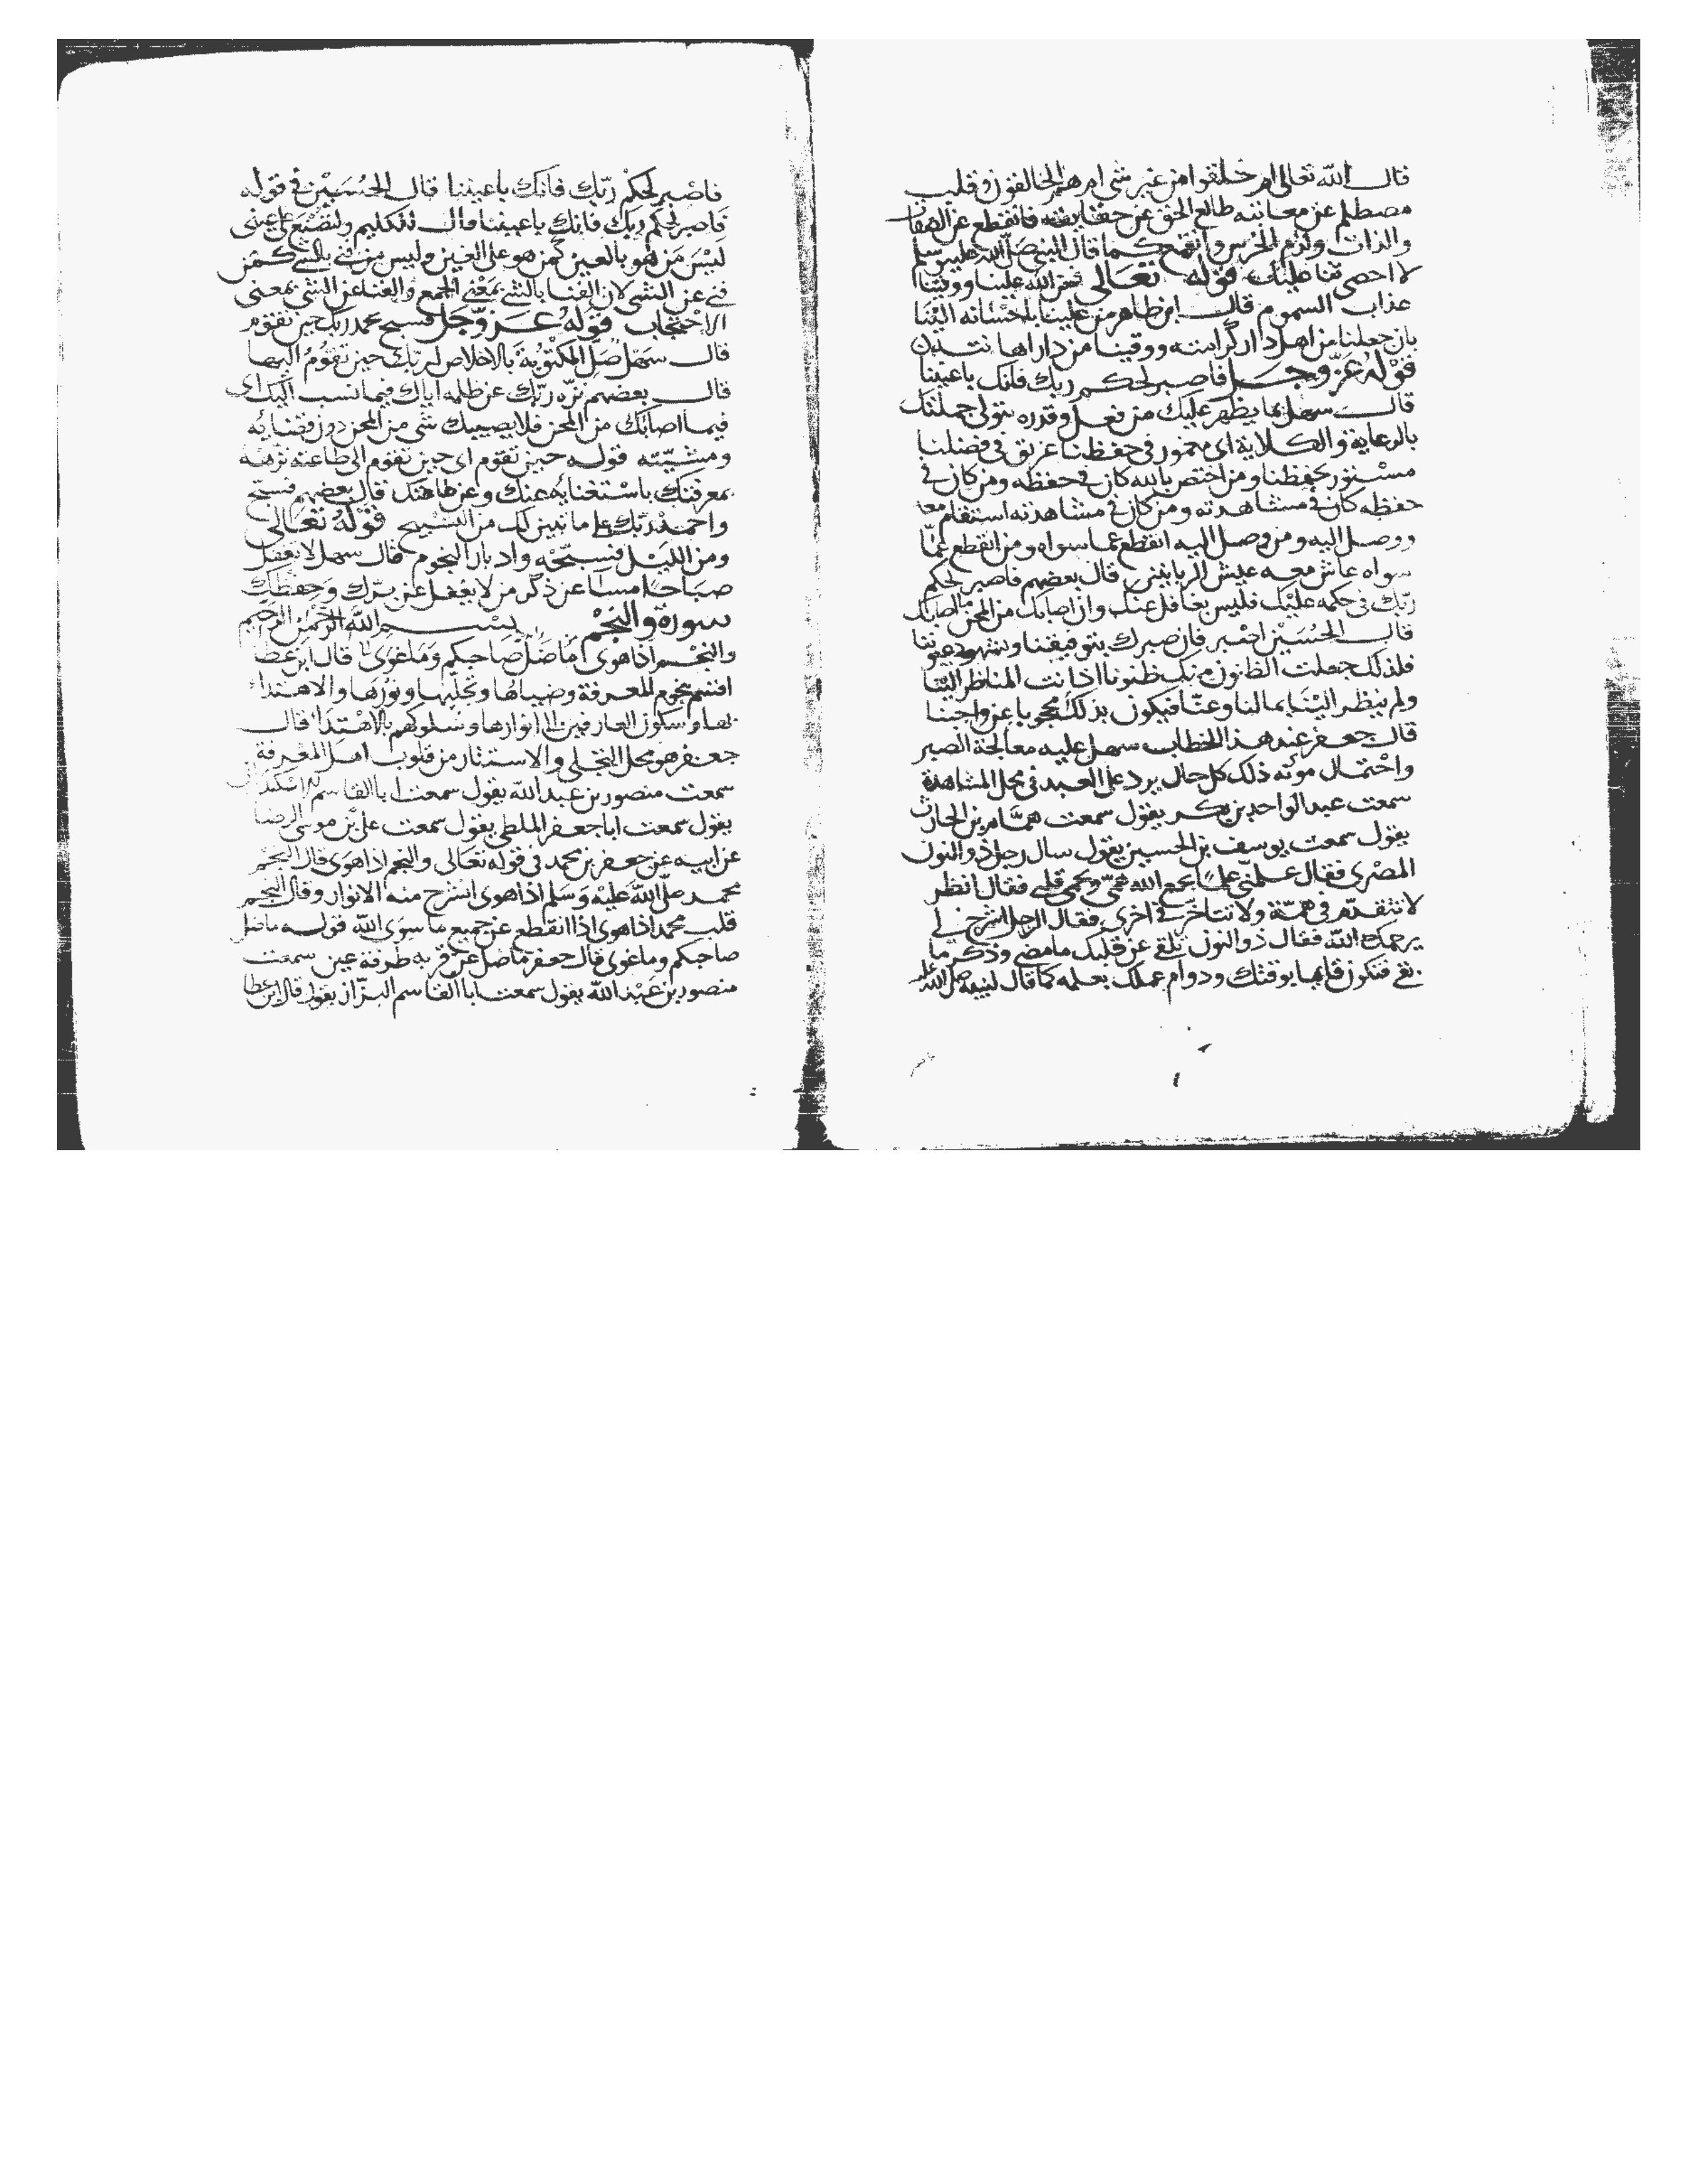 قال الله تعالى ام خلقوا من غير شى ام هم الخالقون وقلب
مصطلم عن معاينة طالع الحق عن حقايقه فانقطع عن الصفات
والذات ولزم الخرس وانقمع كما قال النبى صلى الله عليه وسلم
لا احصى ثنا عليك قوله تعالى فمن الله علينا ووقينا
عذاب السموم قال ابن طاهر من علينا باحسانه الينا
بان جعلنا من اهل دار كرامته ووقينا من دار اهانته
قوله عز وجل فاصبر لحكم ربك فانك باعيننا
قال سهل ما يظهر عليك من فعل وقدره يتولى جملتك
بالرعاية والكلاية اى مخمور فى حفظنا غريق فى فضلنا
مستور بحفظنا ومن اختص بالله كان فى حفظه ومن كان فى
حفظه كان فى مشاهدته ومن كان فى مشاهدته استقام معه
ووصل اليه ومن وصل اليه انقطع عما سواه ومن انقطع عما
سواه عاش معه عيش الربانيين قال بعضهم فاصبر لحكم
ربك فى حكمه عليك فليس بغافل عنك وان اصابك من المحن ما اصابك
قال الحسين اصبر فان صبرك بتوفيقنا وبشهود
فلذلك جعلت الظانون منك ظنونا اذا نت المناظر الينا
ولم ينظر الينا بما لنا وعنا فيكون بذلك محجوبا عن واجبنا
قال جعفر عند هذا الخطاب سهل عليه معالجة الصبر
واحتمال موته ذلك كل حال يرد على العبد فى محل المشاهدة
سمعت عبد الواحد بن بكر يقول سمعت همام بن الحارث
يقول سمعت يوسف بن الحسين يقول سال رجل ذو النون
المصرى فقال علمنى علما يجمع الله همى ويحمى قلبى فقال انظر
لا تتقدم فى همة ولا تتاخر فى اخرى فقال الرجل اشرح لى
يرحمك الله فقال ذو النون تلقى عن قلبك ما مضى وذكر ما
بقى فتكون قايما بوقتك ودوام عملك بعلمه كما قال لنبيه صلى الله عليه
فاصبر لحكم ربك فانك باعيننا قال الحسين فى قوله
فاصبر لحكم ربك فانك باعيننا وقال للكليم ولتصنع على عينى
ليس من هو بالعين كمن هو على العين وليس من فنى بالشى كمن
فنى عن الشى لان الفنا بالشى بمعنى الجمع والفنا عن الشى بمعنى
الاحتجاب قوله عز وجل فسبح بحمد ربك حين تقوم
قال سهل صل المكتوبة بالاخلاص لربك حين تقوم اليها
قال بعضهم نزه ربك عن ظلمه اياك فيما نسب اليك اى
فيما اصابك من المحن فلا يصيبك شى من المحن دون قضايه
ومشيته قوله حين تقوم اى حين تقوم الى طاعته نزهه
بمعرفتك باستغنايه عنك وعن طاعتك قال بعضهم فسبح
واحمد ربك على ما تبين لك من التسبيح قوله تعالى
ومن الليل فسبحه وادبار النجوم قال سهل لا تغفل
صباحا مسا عن ذكر من لا يغفل عن برك وحفظك
سورة والنجم بسم الله الرحمن الرحيم
والنجم اذا هوى ما ضل صاحبكم وما غوى قال ابن عطا
اقسم بنجوم المعرفة وضياها وتجليها ونورها والاهتداء
بها وسكون العارفين الى انوارها وسلوكهم بالاهتدا قال
جعفر هو محل التجلى والاستتار من قلوب اهل المعرفة
سمعت منصور بن عبد الله يقول سمعت ابا القاسم الاسكندرانى
يقول سمعت ابا جعفر الملطى يقول سمعت على بن موسى الرضا
عن ابيه عن جعفر بن محمد فى قوله تعالى والنجم اذا هوى قال النجم
محمد صلى الله عليه وسلم اذا هوى انشرح منه الانوار وقال النجم
قلب محمد اذا هوى اذا انقطع عن جميع ما سوى الله قوله ما ضل
صاحبكم وما غوى قال جعفر ما ضل عن قربه طرفة عين سمعت
منصور بن عبد الله يقول سمعت ابا القاسم البزاز يقول قال ابن عطا